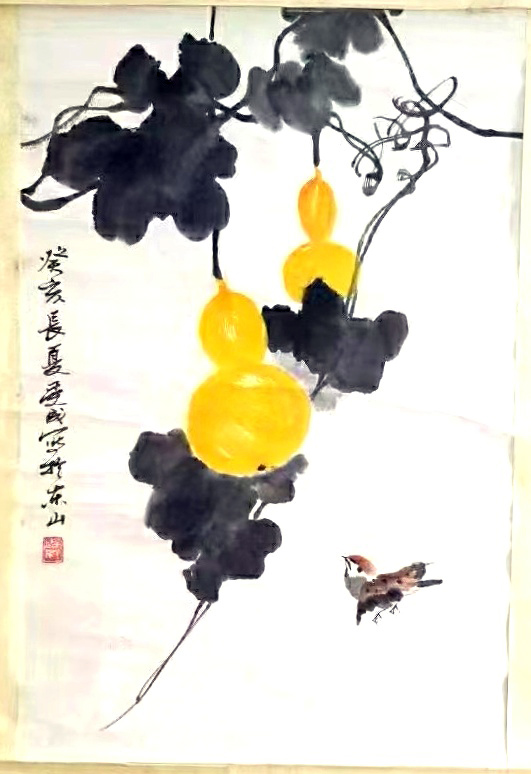 癸亥長夏受成寫於东山